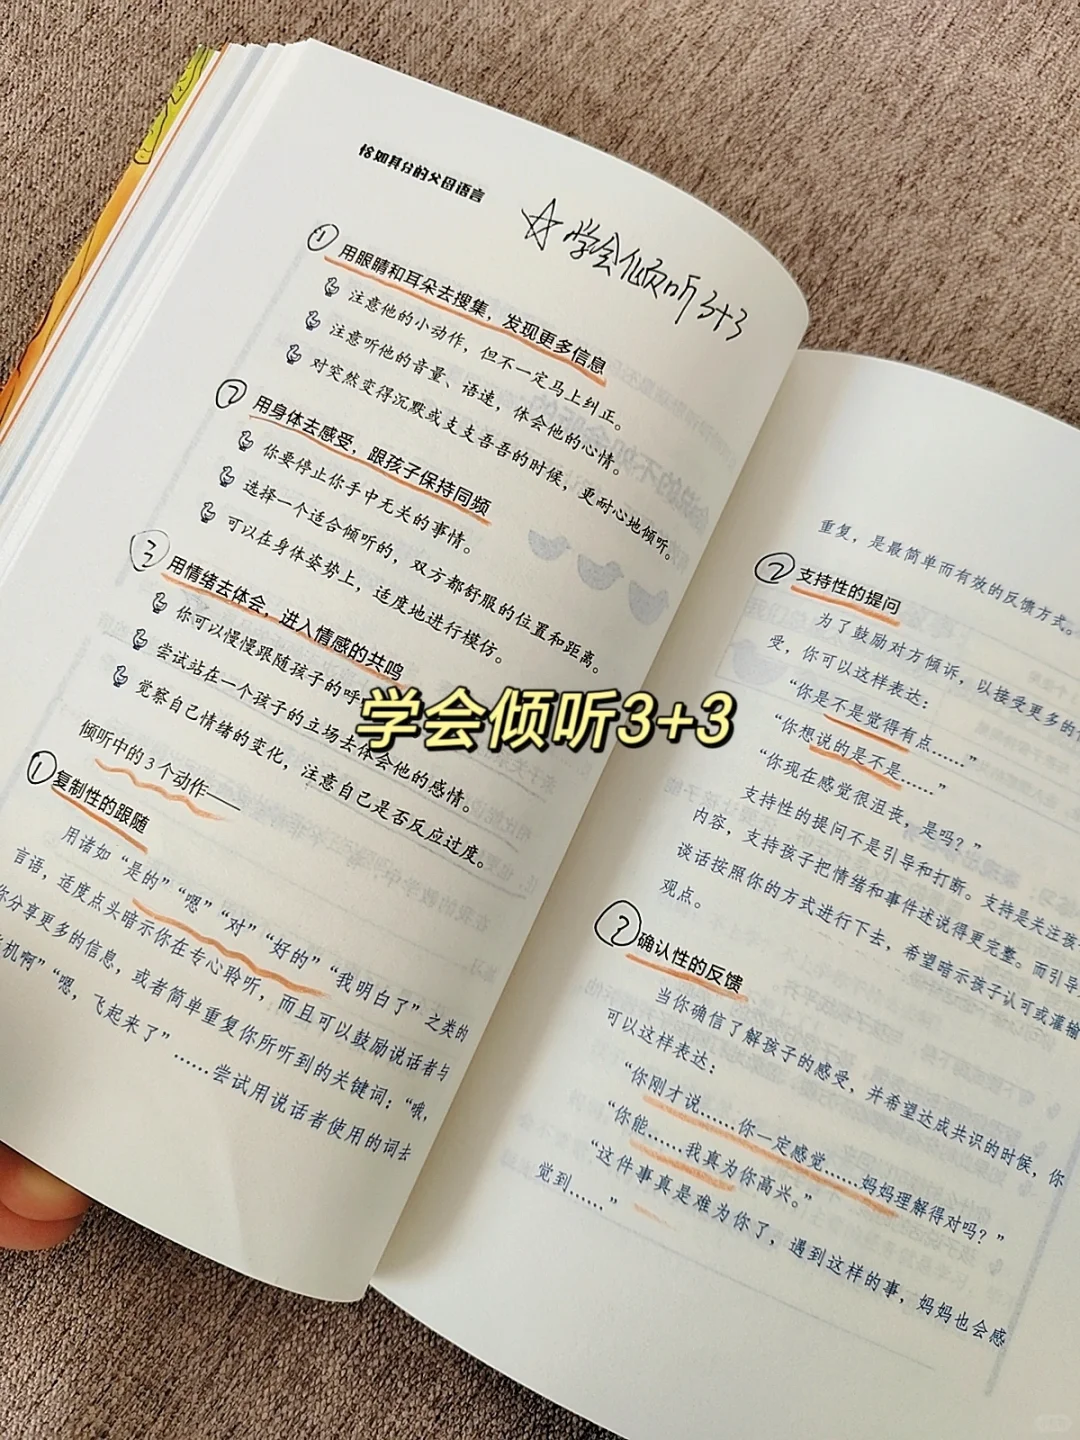 恰如其分的父母语言
☆ 学会倾听 3+3
① 用眼睛和耳朵去搜集，发现更多信息
注意他的小动作，但不一定马上纠正。
注意听他的音量、语速，体会他的心情。
对突然变得沉默或支支吾吾的时候，更耐心地倾听。
② 用身体去感受，跟孩子保持同频
你要停止你手中无关的事情。
选择一个适合倾听的，双方都舒服的位置和距离。
可以在身体姿势上，适度地进行模仿。
③ 用情绪去体会，进入情感的共鸣
你可以慢慢跟随孩子的呼
尝试站在一个孩子的立场去体会他的感情。
觉察自己情绪的变化，注意自己是否反应过度。
学会倾听3+3
倾听中的3个动作——
① 复制性的跟随
用诸如“是的”“嗯”“对”“好的”“我明白了”之类的
言语，适度点头暗示你在专心聆听，而且可以鼓励说话者与
你分享更多的信息，或者简单重复你所听到的关键词：“哦，
机啊”“嗯，飞起来了”……尝试用说话者使用的词去
重复，是最简单而有效的反馈方式。
② 支持性的提问
为了鼓励对方倾诉，以接受更多的
受，你可以这样表达：
“你是不是觉得有点……”
“你想说的是不是……”
“你现在感觉很沮丧，是吗？”
支持性的提问不是引导和打断。支持是关注孩
内容，支持孩子把情绪和事件述说得更完整。而引导
谈话按照你的方式进行下去，希望暗示孩子认可或灌输
观点。
② 确认性的反馈
当你确信了解孩子的感受，并希望达成共识的时候，你
可以这样表达：
“你刚才说……你一定感觉……妈妈理解得对吗？”
“你能……我真为你高兴。”
“这件事真是难为你了，遇到这样的事，妈妈也会感
觉到……”